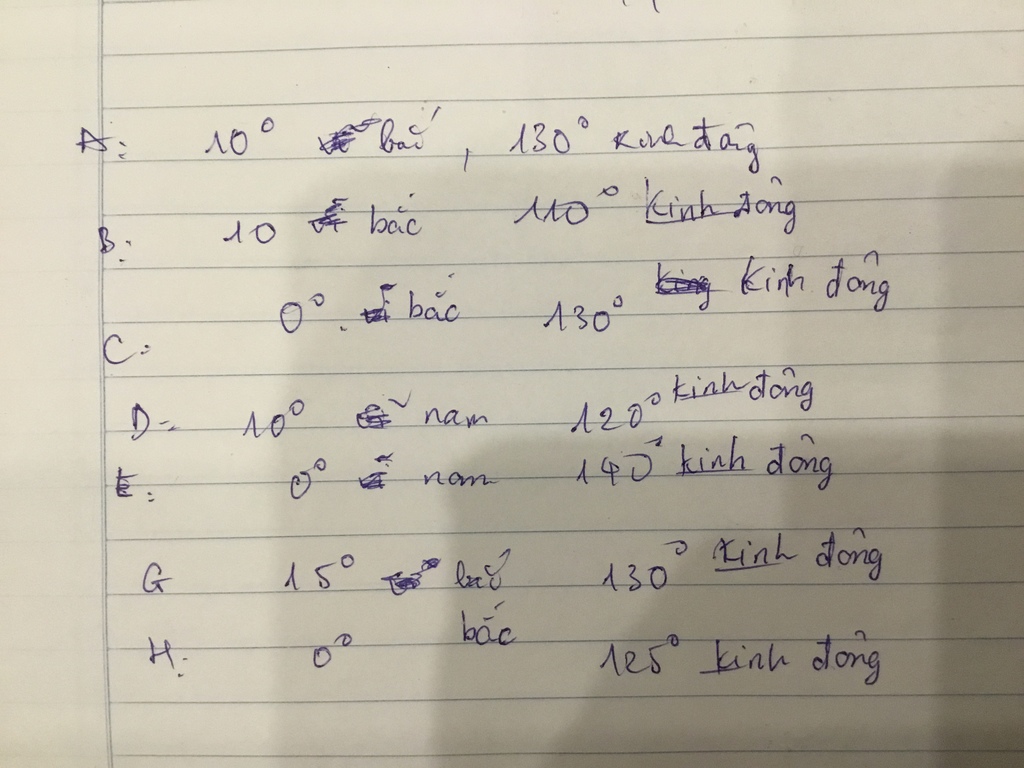 A: 10° bắc, 130° kinh đông
B: 10 bắc 110° kinh đông
C: 0° bắc 130° kinh đông
D: 10° nam 120° kinh đông
E: 0° nam 140° kinh đông
G 15° bắc 130° kinh đông
H: 0° bắc 125° kinh đông